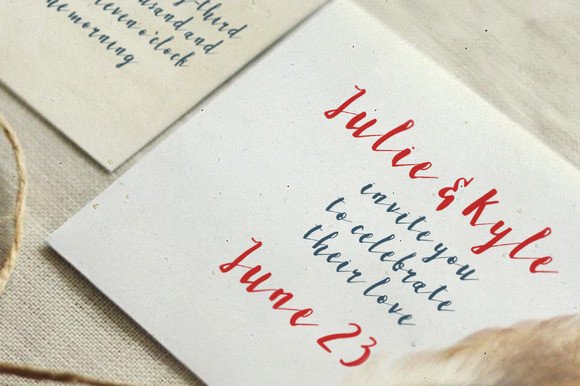 third
usand and
leven o'clock
he morning
Julie & Kyle
invite you
to celebrate
their love
June 23